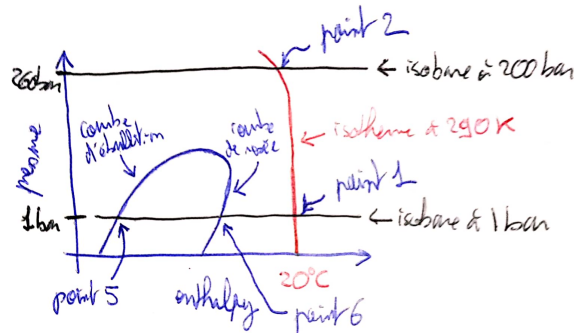 point 2
200 bar
← isobare à 200 bar
courbe
d'ébullition
courbe
de rosée
← isotherme à 290 K
pression
point 1
1 bar
← isobare à 1 bar
point 5
enthalpy
20°C
point 6